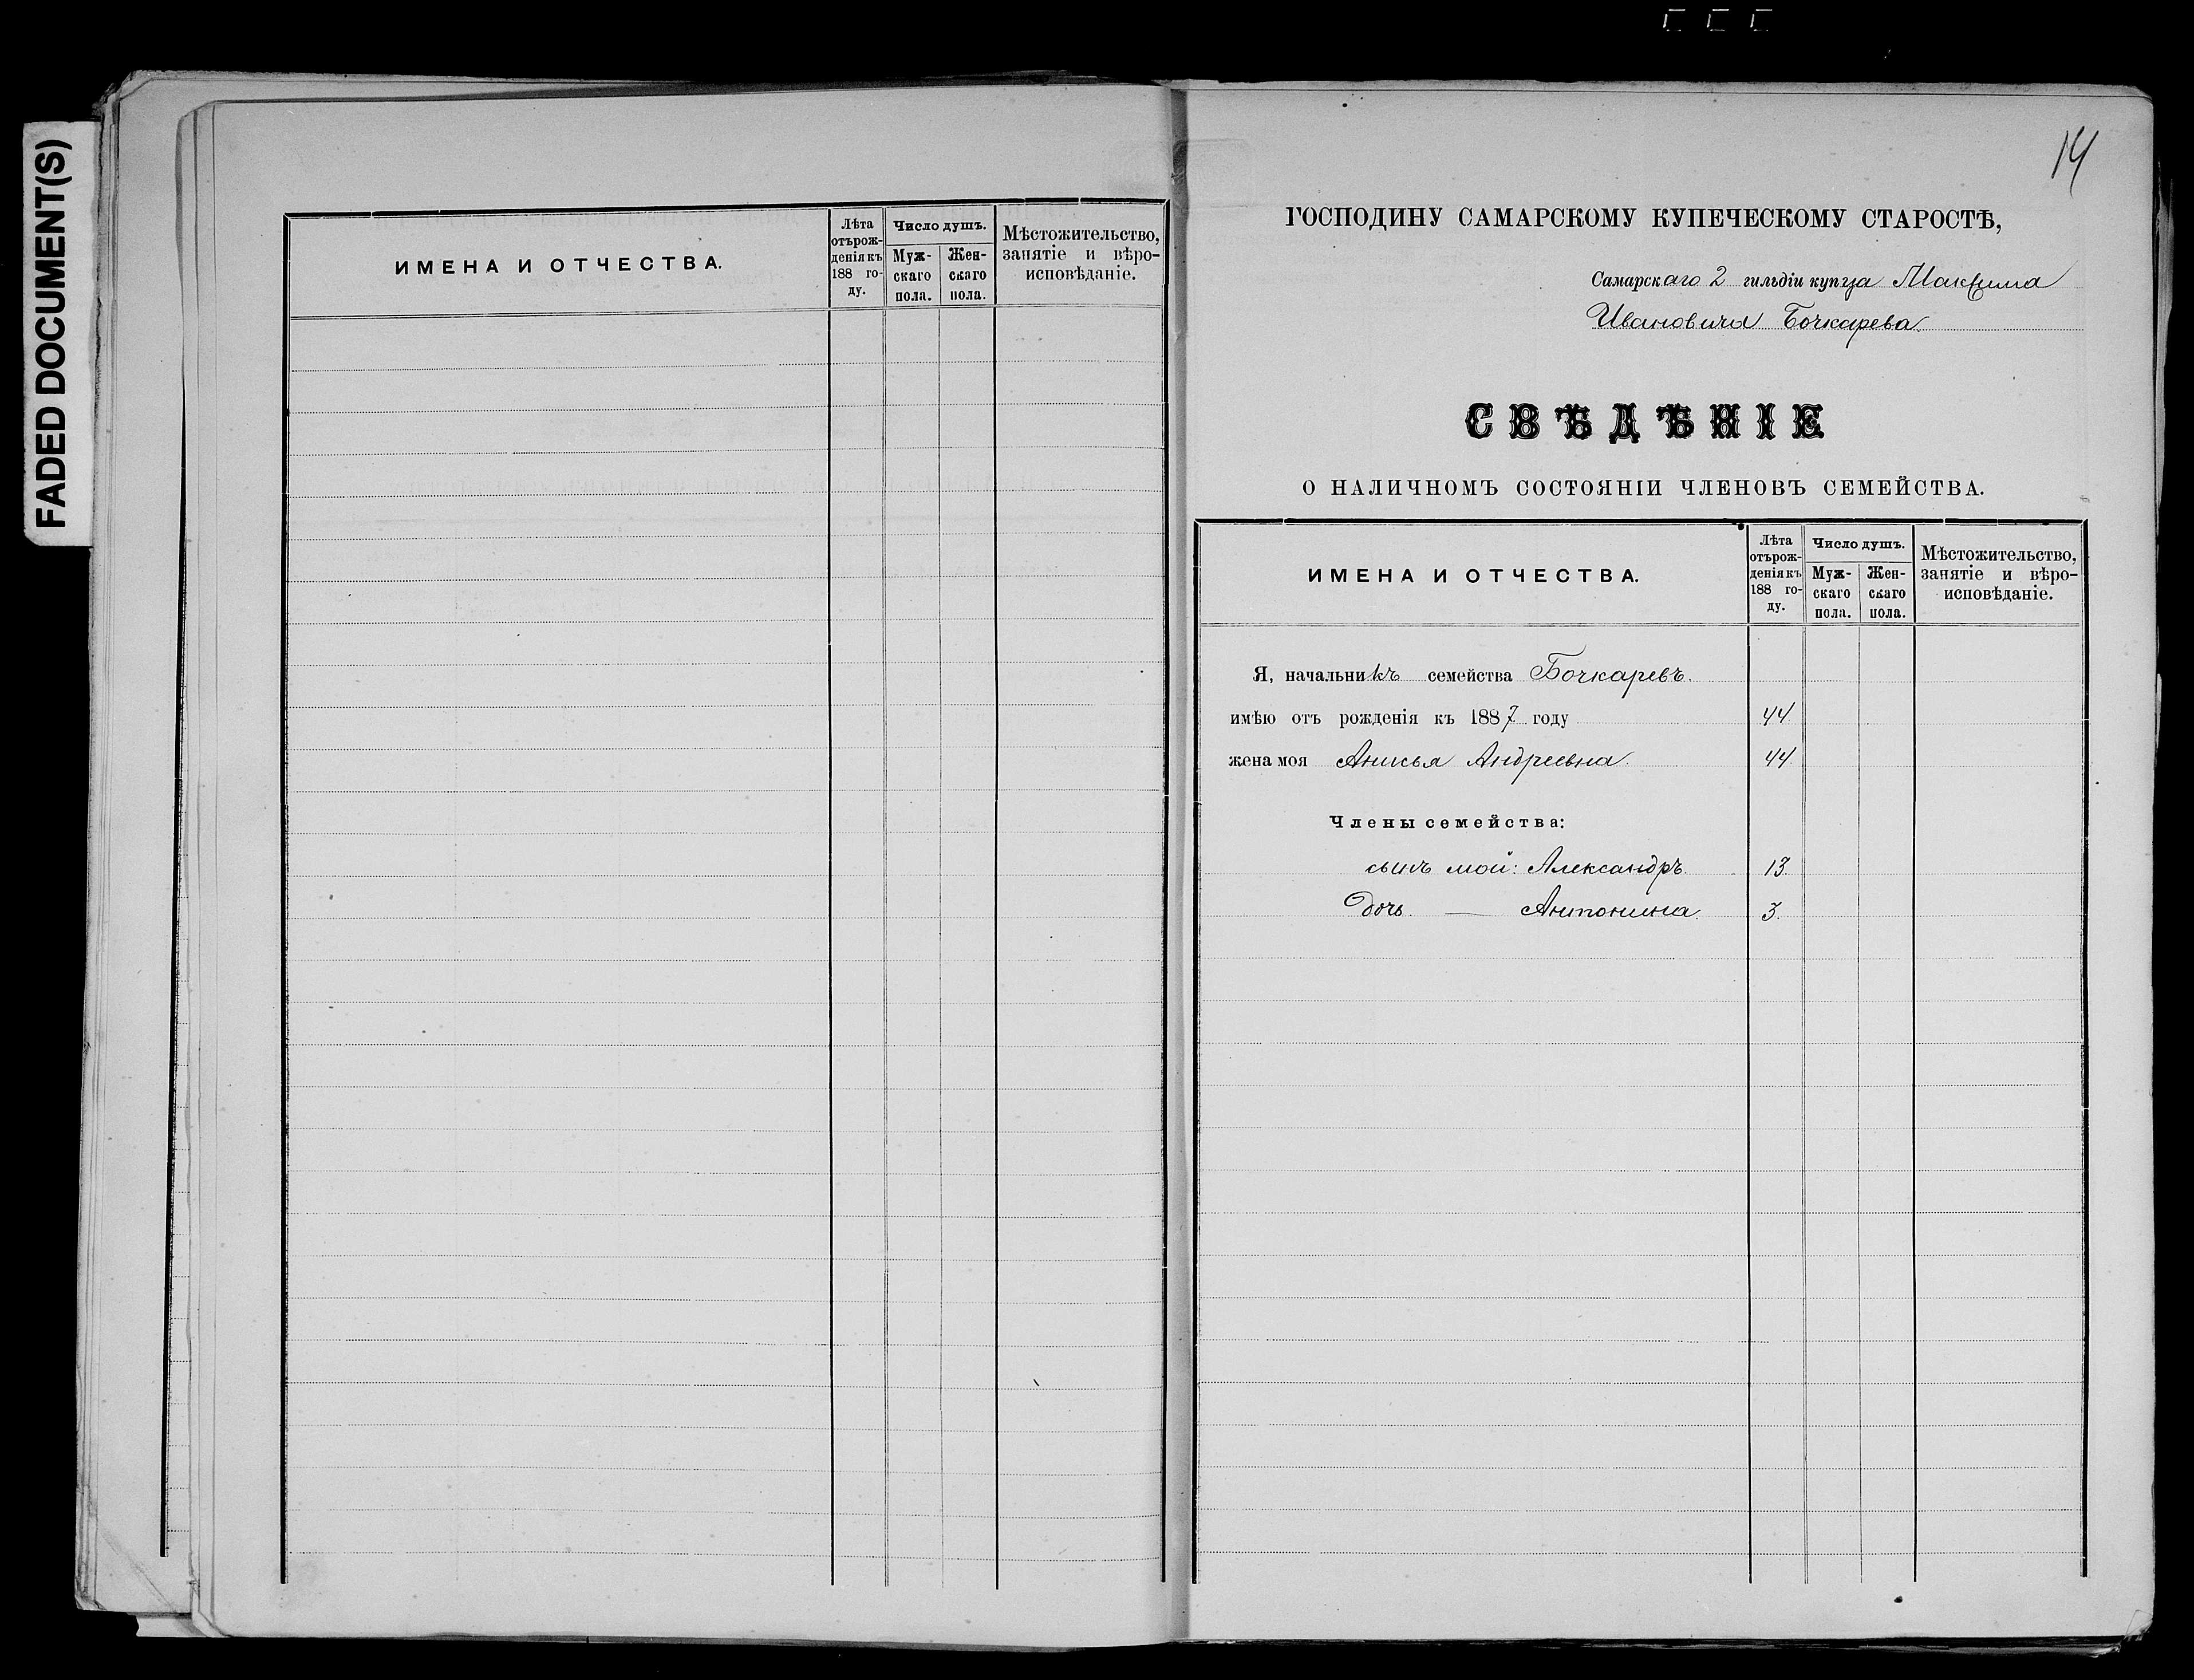 FADED DOCUMENT(S)
ИМЕНА И ОТЧЕСТВА.
Лѣта
отърож-
денія къ
188 го-
ду.
Число душъ.
Муж-
скаго
пола.
Жен-
скаго
пола.
Мѣстожительство,
занятіе и вѣро-
исповѣданіе.
14
ГОСПОДИНУ САМАРСКОМУ КУПЕЧЕСКОМУ СТАРОСТѢ,
Самарскаго 2 гильдіи купца Максима
Ивановича Бочкарева.
СВѢДѢНІЕ
О НАЛИЧНОМЪ СОСТОЯНІИ ЧЛЕНОВЪ СЕМЕЙСТВА.
ИМЕНА И ОТЧЕСТВА.
Лѣта
отърож-
денія къ
188 го-
ду.
Число душъ.
Муж-
скаго
пола.
Жен-
скаго
пола.
Мѣстожительство,
занятіе и вѣро-
исповѣданіе.
Я, начальникъ семейства Бочкаревъ.
имѣю отъ рожденія къ 1887 году 44
жена моя Анисья Андреевна. 44
Члены семейства:
сынъ мой: Александръ. 13.
Дочь. — Антонина. 3.